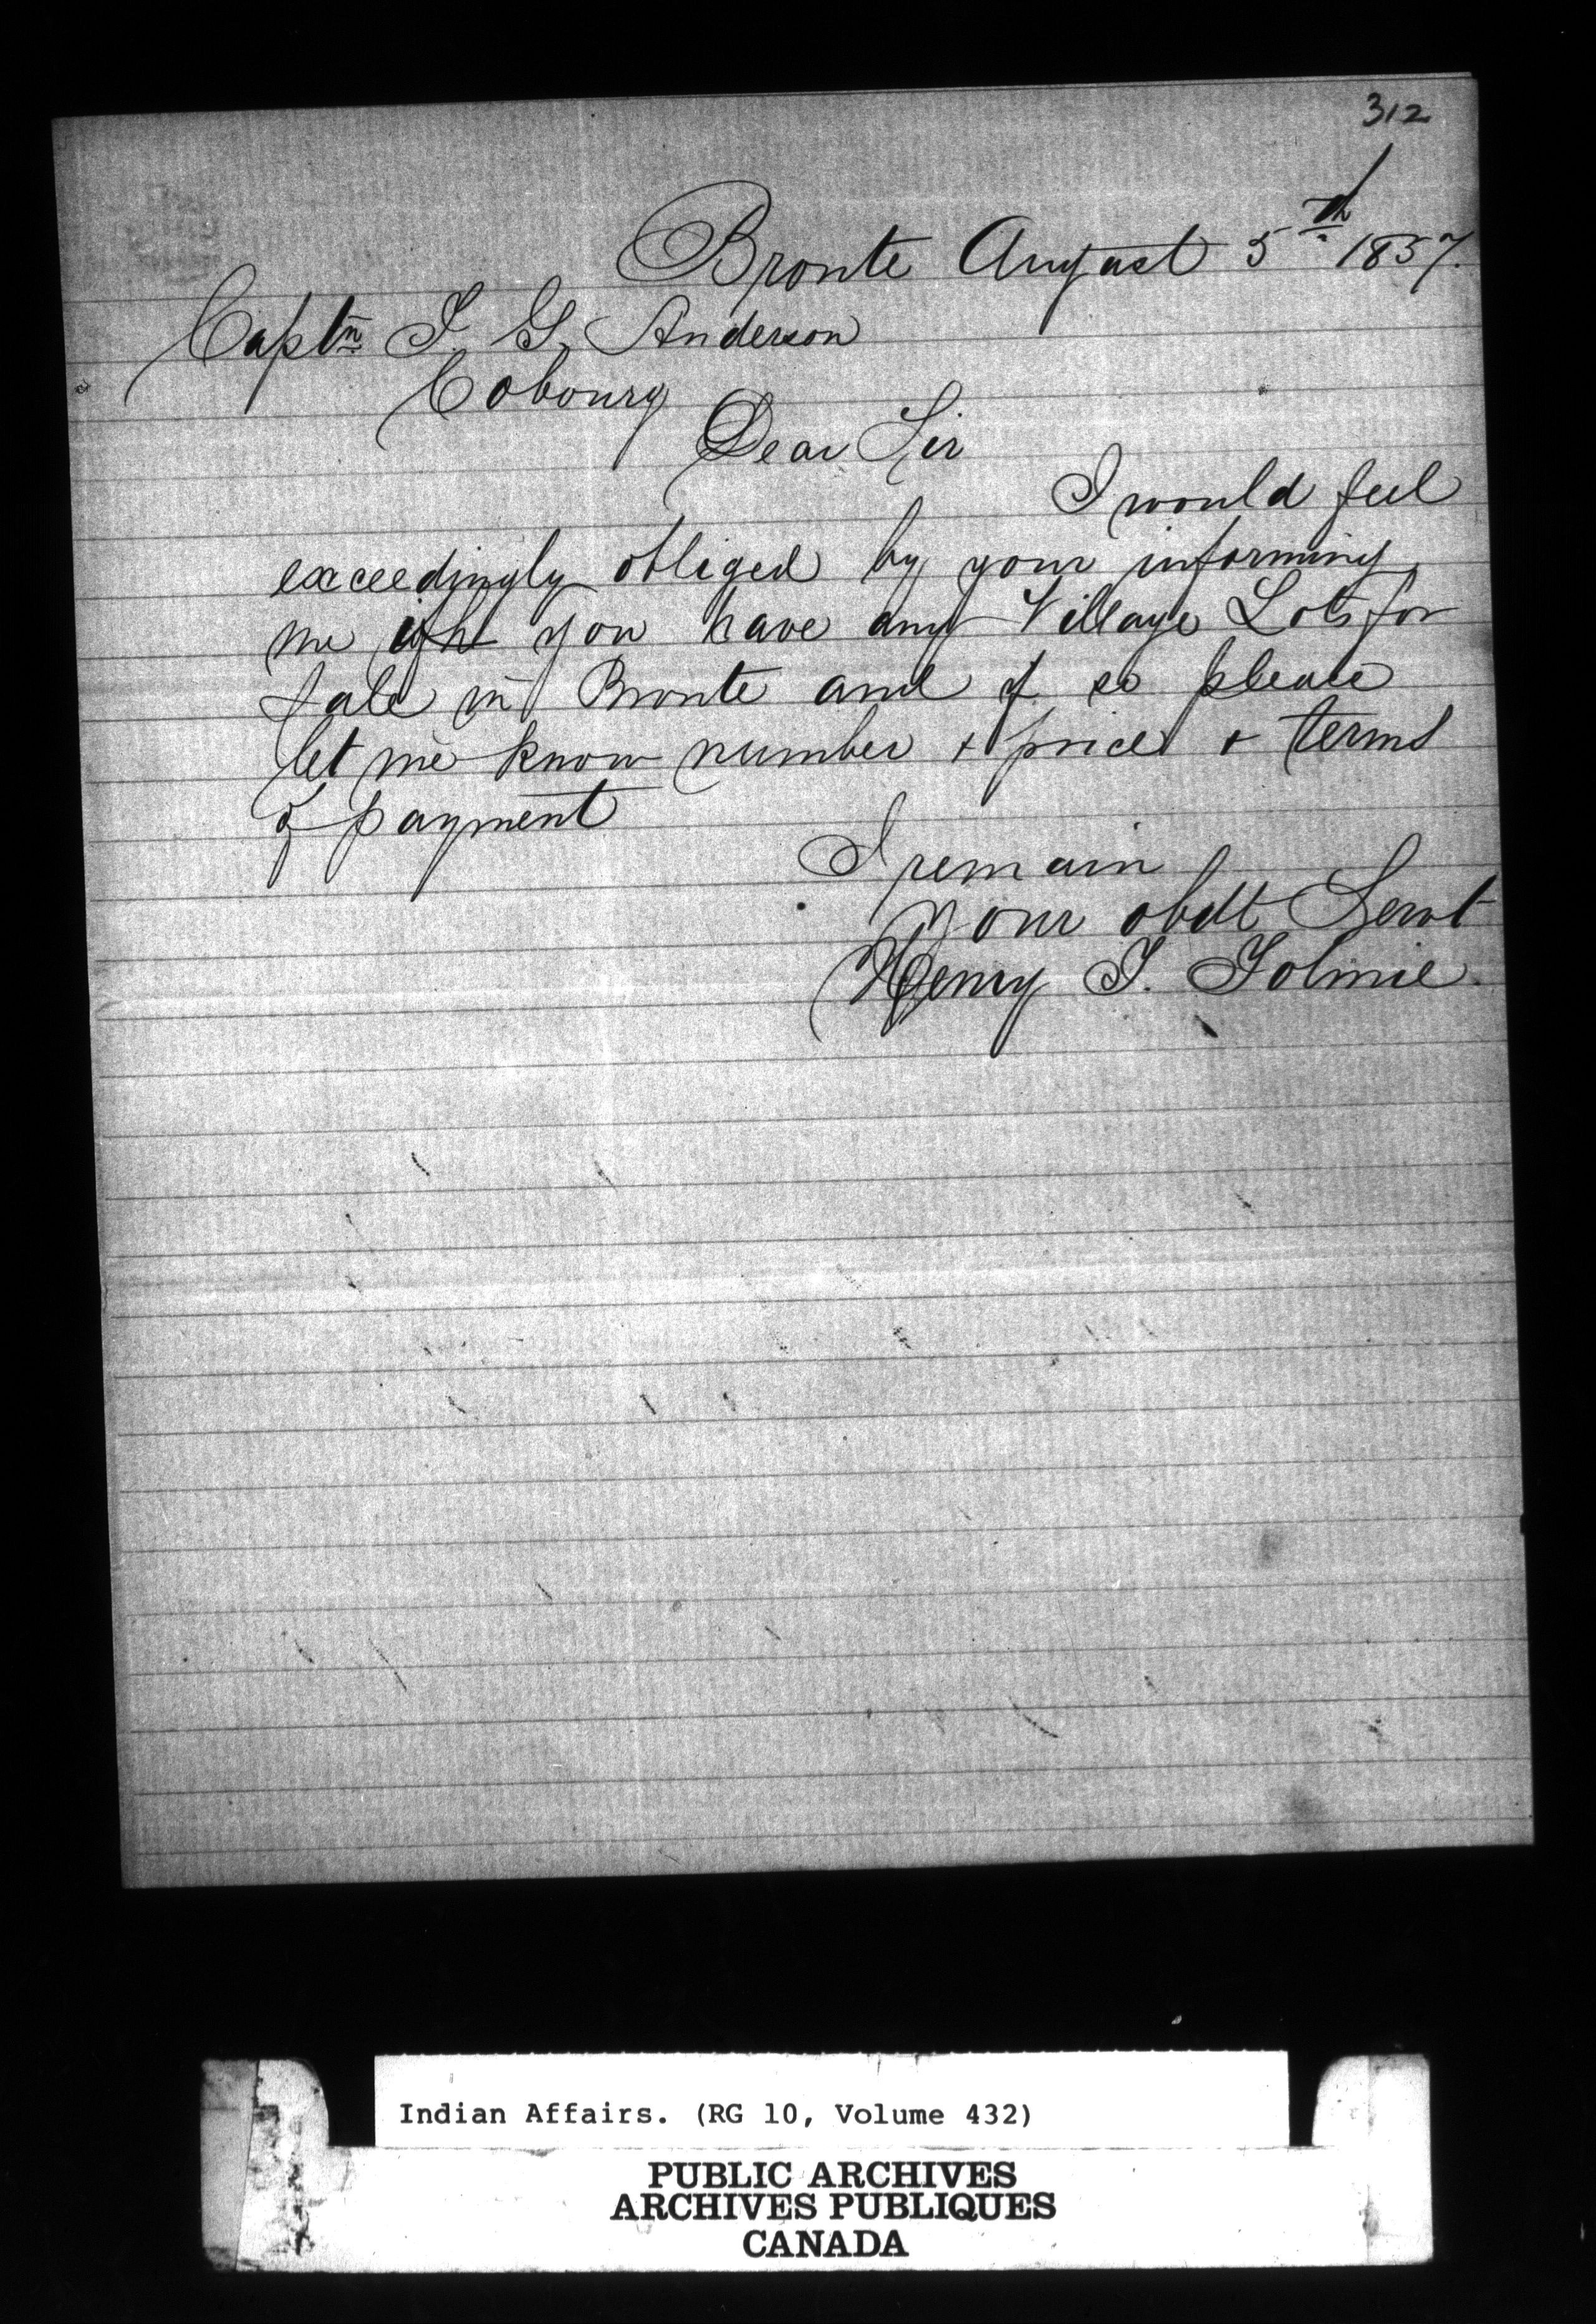 312
Bronte August 5th 1857.
Captn T. G. Anderson
Cobourg
Dear Sir
I would feel
exceedingly obliged by your informing
me if you have any Village Lots for
Sale in Bronte and if so please
let me know number + price + terms
of payment
I remain
your obdt Servt
Henry T. Tolmie.
Indian Affairs. (RG 10, Volume 432)
PUBLIC ARCHIVES
ARCHIVES PUBLIQUES
CANADA